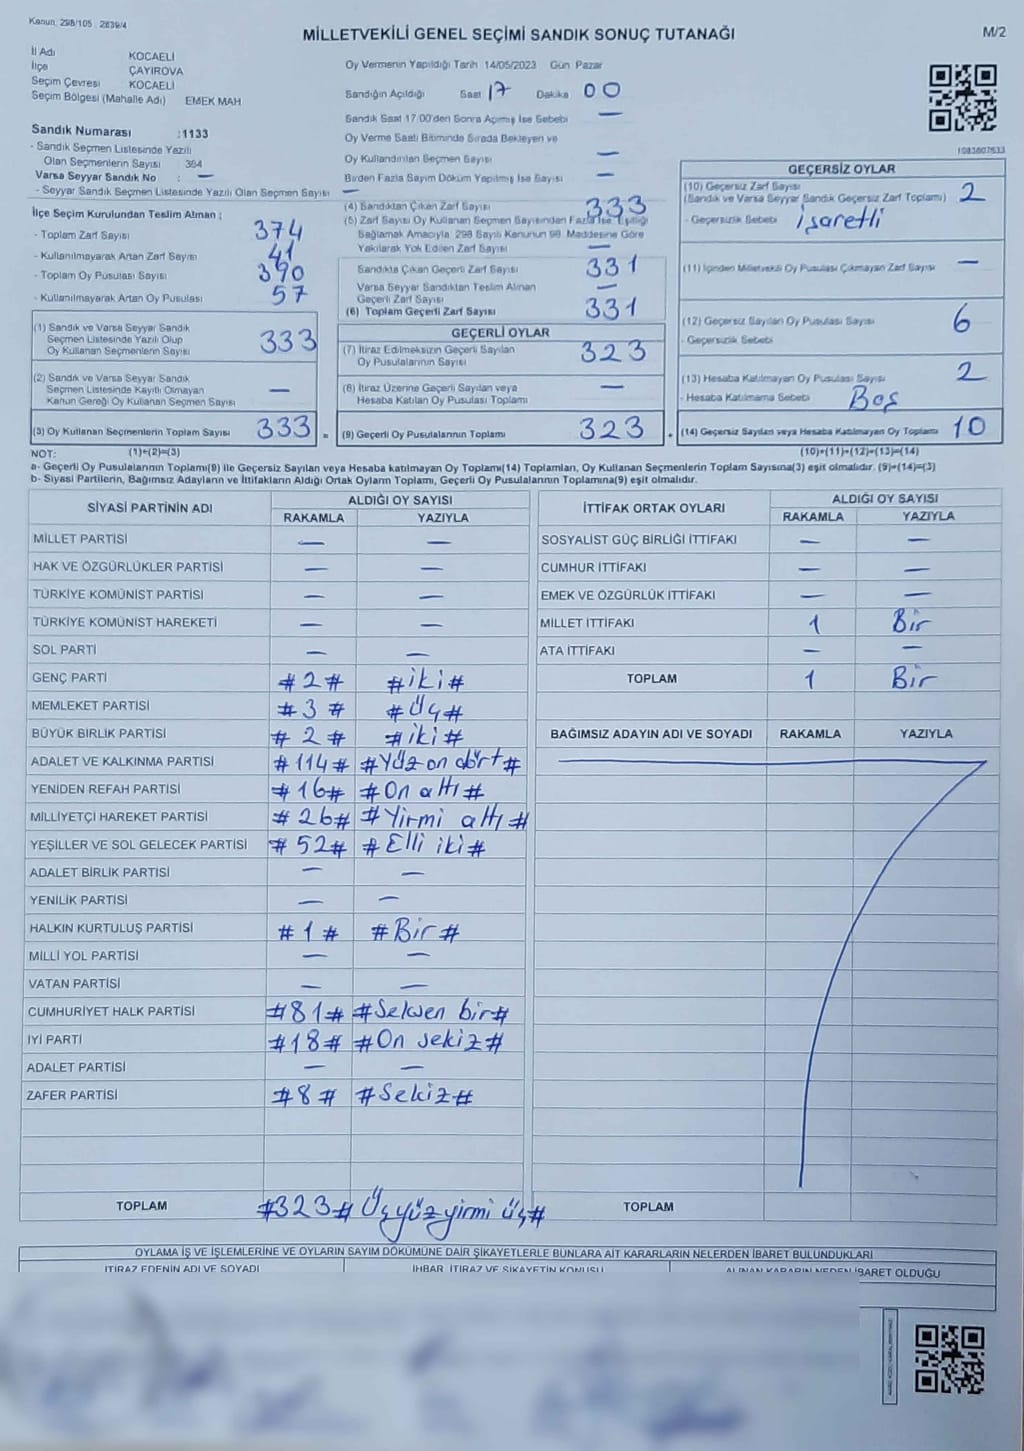 Kanun: 298/105 2839/4
MİLLETVEKİLİ GENEL SEÇİMİ SANDIK SONUÇ TUTANAĞI
M/2
İl Adı KOCAELİ
İlçe ÇAYIROVA
Seçim Çevresi KOCAELİ
Seçim Bölgesi (Mahalle Adı) EMEK MAH
Oy Vermenin Yapıldığı Tarih 14/05/2023 Gün Pazar
Sandığın Açıldığı Saat 17 Dakika 00
Sandık Saat 17:00'den Sonra Açılmış İse Sebebi —
Oy Verme Saati Bitiminde Sırada Bekleyen ve
Oy Kullandırılan Seçmen Sayısı —
Birden Fazla Sayım Döküm Yapılmış İse Sayısı —
Sandık Numarası :1133
- Sandık Seçmen Listesinde Yazılı
Olan Seçmenlerin Sayısı : 384
Varsa Seyyar Sandık No : —
- Seyyar Sandık Seçmen Listesinde Yazılı Olan Seçmen Sayısı —
İlçe Seçim Kurulundan Teslim Alınan ;
- Toplam Zarf Sayısı 374
- Kullanılmayarak Artan Zarf Sayısı 41
- Toplam Oy Pusulası Sayısı 390
- Kullanılmayarak Artan Oy Pusulası 57
(1) Sandık ve Varsa Seyyar Sandık
Seçmen Listesinde Yazılı Olup
Oy Kullanan Seçmenlerin Sayısı 333
(2) Sandık ve Varsa Seyyar Sandık
Seçmen Listesinde Kayıtlı Olmayan
Kanun Gereği Oy Kullanan Seçmen Sayısı —
(3) Oy Kullanan Seçmenlerin Toplam Sayısı 333 =
(4) Sandıktan Çıkan Zarf Sayısı 333
(5) Zarf Sayısı Oy Kullanan Seçmen Sayısından Fazla İse, Eşitliği
Sağlamak Amacıyla 298 Sayılı Kanunun 98. Maddesine Göre
Yakılarak Yok Edilen Zarf Sayısı —
Sandıkta Çıkan Geçerli Zarf Sayısı 331
Varsa Seyyar Sandıktan Teslim Alınan
Geçerli Zarf Sayısı —
(6) Toplam Geçerli Zarf Sayısı 331
GEÇERLİ OYLAR
(7) İtiraz Edilmeksizin Geçerli Sayılan
Oy Pusulalarının Sayısı 323
(8) İtiraz Üzerine Geçerli Sayılan veya
Hesaba Katılan Oy Pusulası Toplamı —
(9) Geçerli Oy Pusulalarının Toplamı 323 +
1083607633
GEÇERSİZ OYLAR
(10) Geçersiz Zarf Sayısı
(Sandık ve Varsa Seyyar Sandık Geçersiz Zarf Toplamı) 2
- Geçersizlik Sebebi İşaretli
(11) İçinden Milletvekili Oy Pusulası Çıkmayan Zarf Sayısı —
(12) Geçersiz Sayılan Oy Pusulası Sayısı 6
- Geçersizlik Sebebi
(13) Hesaba Katılmayan Oy Pusulası Sayısı 2
- Hesaba Katılmama Sebebi Boş
(14) Geçersiz Sayılan veya Hesaba Katılmayan Oy Toplamı 10
NOT: (1)+(2)=(3) (10)+(11)+(12)+(13)=(14)
a- Geçerli Oy Pusulalarının Toplamı(9) ile Geçersiz Sayılan veya Hesaba katılmayan Oy Toplamı(14) Toplamları, Oy Kullanan Seçmenlerin Toplam Sayısına(3) eşit olmalıdır. (9)+(14)=(3)
b- Siyasi Partilerin, Bağımsız Adayların ve İttifakların Aldığı Ortak Oyların Toplamı, Geçerli Oy Pusulalarının Toplamına(9) eşit olmalıdır.
SİYASİ PARTİNİN ADI ALDIĞI OY SAYISI
RAKAMLA YAZIYLA
MİLLET PARTİSİ — —
HAK VE ÖZGÜRLÜKLER PARTİSİ — —
TÜRKİYE KOMÜNİST PARTİSİ — —
TÜRKİYE KOMÜNİST HAREKETİ — —
SOL PARTİ — —
GENÇ PARTİ #2# #iki#
MEMLEKET PARTİSİ #3# #Üç#
BÜYÜK BİRLİK PARTİSİ #2# #iki#
ADALET VE KALKINMA PARTİSİ #114# #Yüz on dört#
YENİDEN REFAH PARTİSİ #16# #On altı#
MİLLİYETÇİ HAREKET PARTİSİ #26# #Yirmi altı#
YEŞİLLER VE SOL GELECEK PARTİSİ #52# #Elli iki#
ADALET BİRLİK PARTİSİ — —
YENİLİK PARTİSİ — —
HALKIN KURTULUŞ PARTİSİ #1# #Bir#
MİLLİ YOL PARTİSİ — —
VATAN PARTİSİ — —
CUMHURİYET HALK PARTİSİ #81# #Seksen bir#
İYİ PARTİ #18# #On sekiz#
ADALET PARTİSİ — —
ZAFER PARTİSİ #8# #Sekiz#
TOPLAM #323# Üçyüzyirmi üç#
İTTİFAK ORTAK OYLARI ALDIĞI OY SAYISI
RAKAMLA YAZIYLA
SOSYALİST GÜÇ BİRLİĞİ İTTİFAKI — —
CUMHUR İTTİFAKI — —
EMEK VE ÖZGÜRLÜK İTTİFAKI — —
MİLLET İTTİFAKI 1 Bir
ATA İTTİFAKI — —
TOPLAM 1 Bir
BAĞIMSIZ ADAYIN ADI VE SOYADI RAKAMLA YAZIYLA
TOPLAM
OYLAMA İŞ VE İŞLEMLERİNE VE OYLARIN SAYIM DÖKÜMÜNE DAİR ŞİKAYETLERLE BUNLARA AİT KARARLARIN NELERDEN İBARET BULUNDUKLARI
İTİRAZ EDENİN ADI VE SOYADI İHBAR, İTİRAZ VE ŞİKAYETİN KONUSU ALINAN KARARIN NEDEN İBARET OLDUĞU